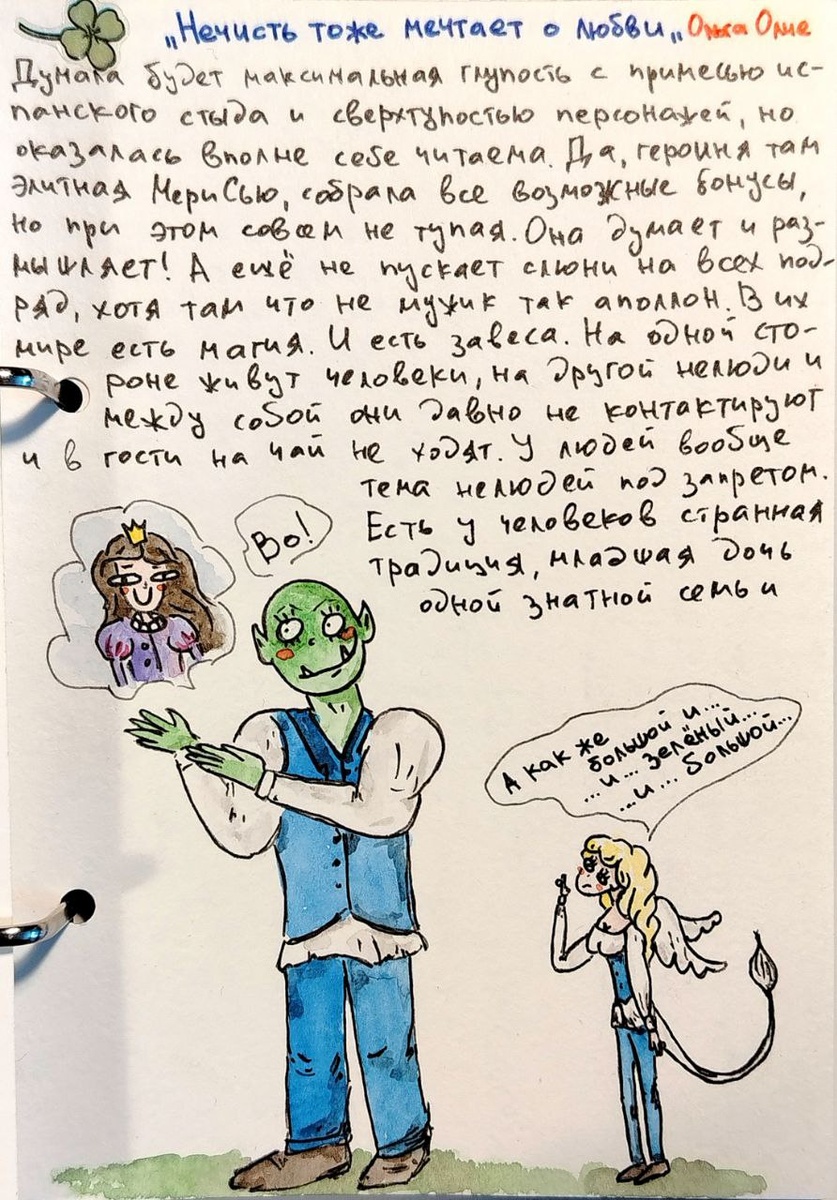 „Нечисть тоже мечтает о любви„ Олка Олие
Думала будет максимальная глупость с примесью ис-
панского стыда и сверхтупостью персонажей, но
оказалась вполне себе читаема. Да, героиня там
элитная МериСью, собрала все возможные бонусы,
но при этом совсем не тупая. Она думает и раз-
мышляет! А ещё не пускает слюни на всех под-
ряд, хотя там что не мужик так аполлон. В их
мире есть магия. И есть завеса. На одной сто-
роне живут человеки, на другой нелюди и
между собой они давно не контактируют
и в гости на чай не ходят. У людей вообще
тема нелюдей под запретом.
Есть у человеков странная
традиция, младшая дочь
одной знатной семьи
Во!
А как же
большой и...
...и... зелёный...
...и... большой...